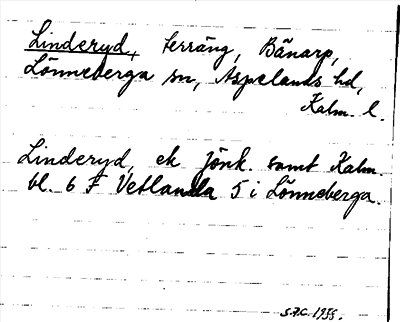 Linderyd, terräng, Bänarp,
Lönneberga sn, Aspelands hd,
Kalm. l.
Linderyd, ek Jönk. samt Kalm.
bl. 6 F Vetlanda 5 i Lönneberga.
S.F.C. 1955.